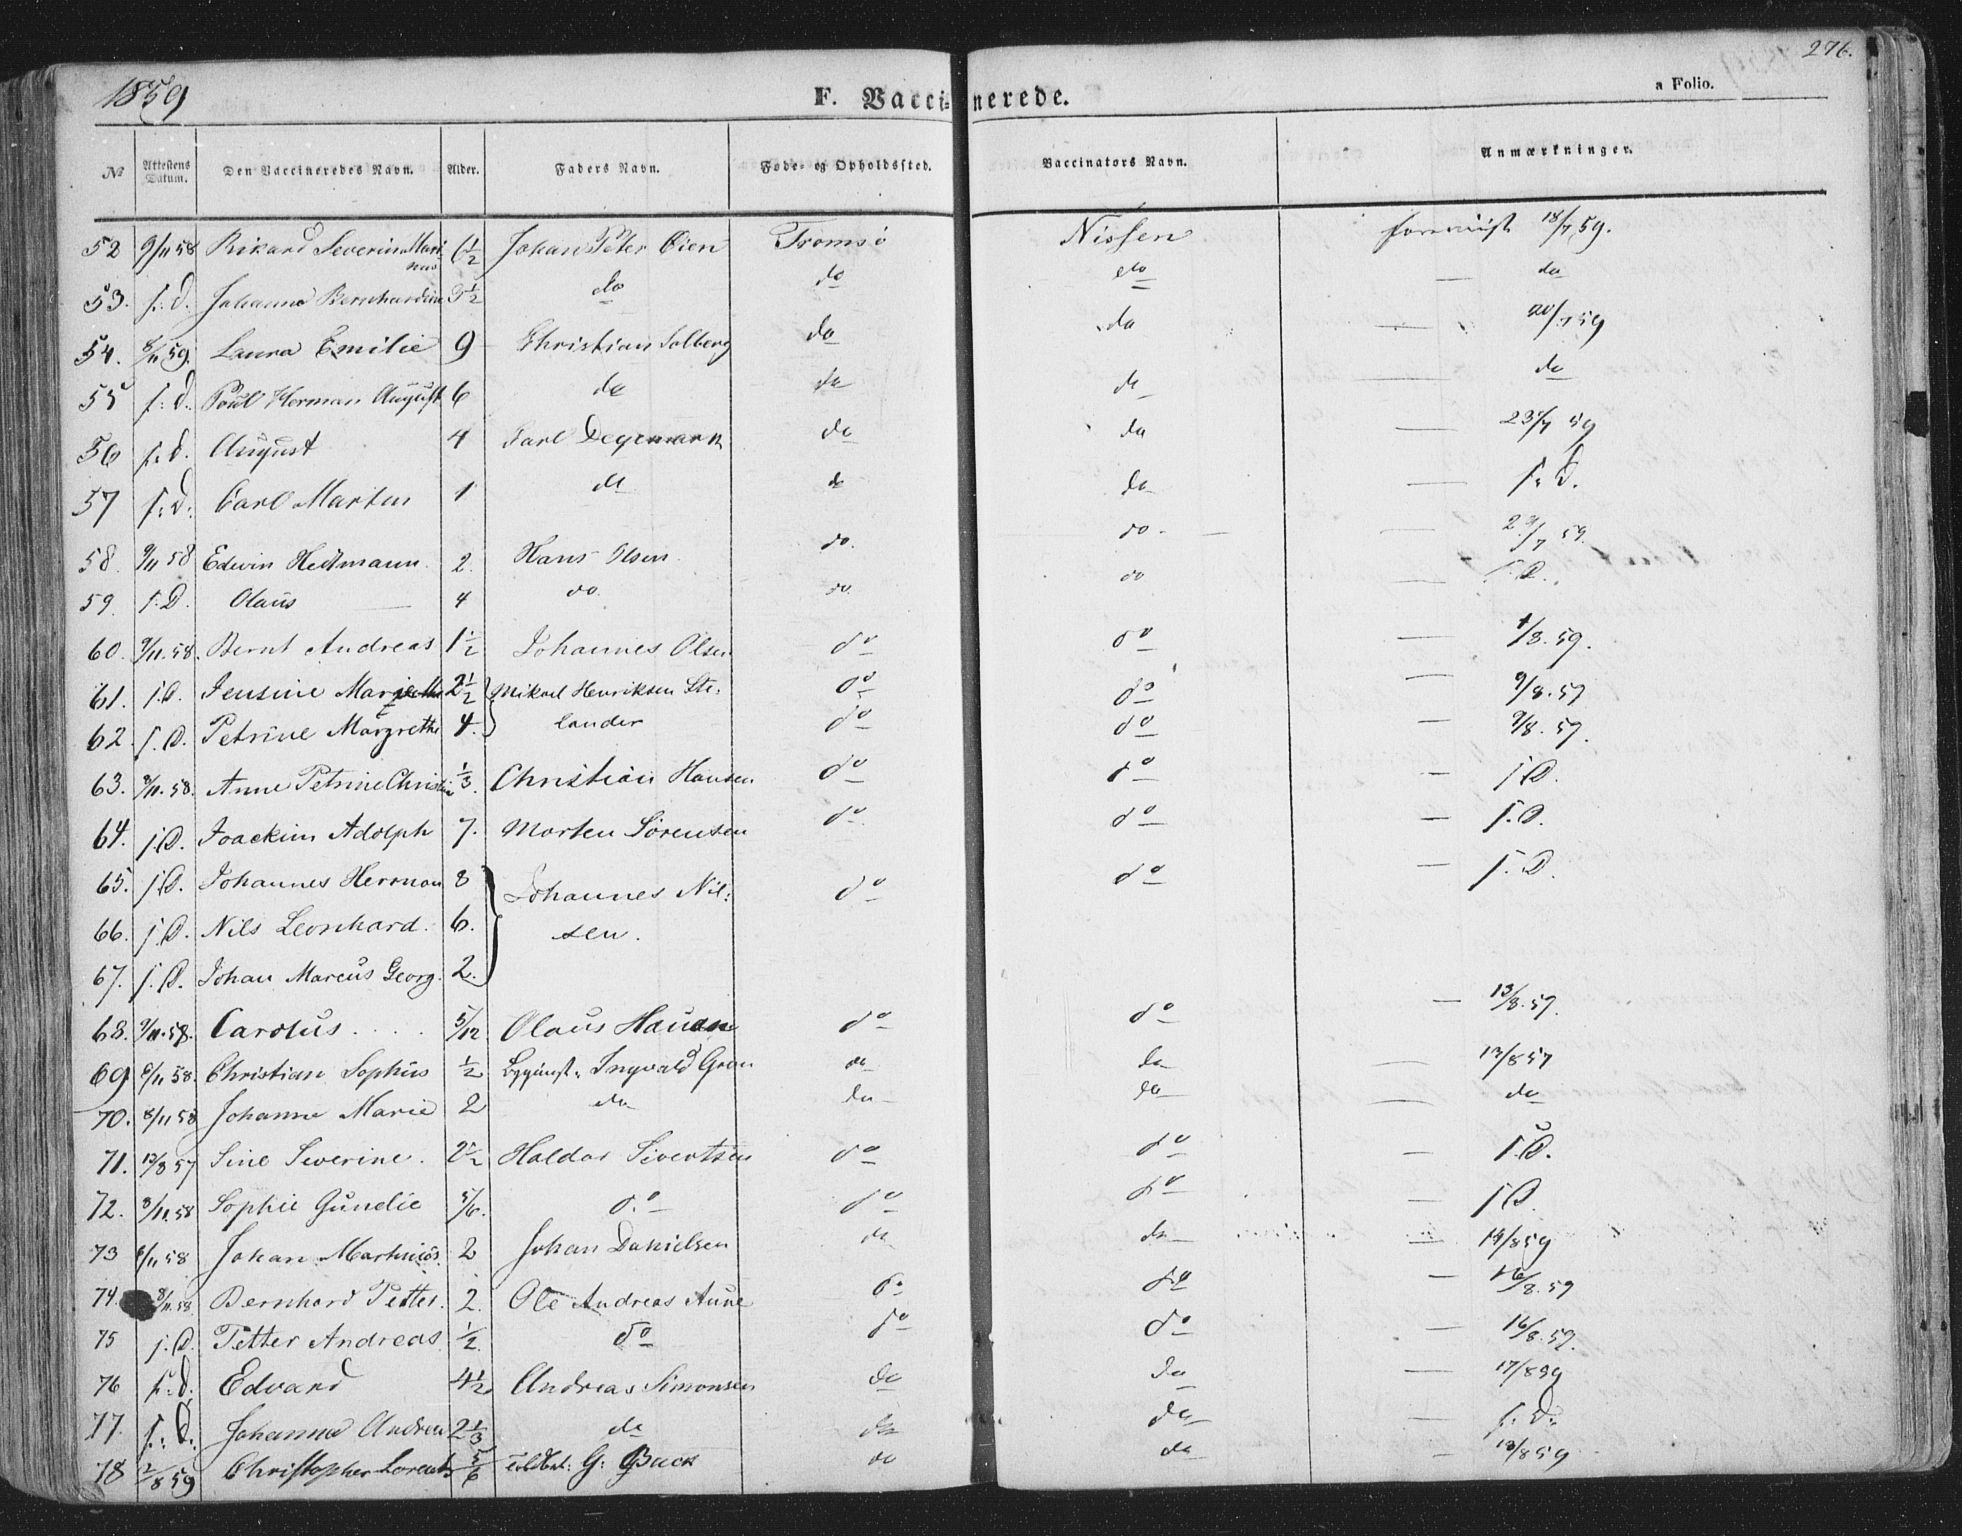 1859 F. Vaccinerede. a Folio. 276.
№ Attestens Datum. Den Vaccineredes Navn. Alder. Faders Navn. Føde- og Opholdssted. Vaccinators Navn. Anmærkninger.
52 9/11 58 Rikard Severin Mari 6 1/2 Johan Peter Oien Tromsø Nissen 18/7 59.
nus
53. s. d. Johanna Bernhardine 3 1/2 do do do — do
54. 8/11 59. Laura Emilie 9 Christian Solberg do do — 20/7 59
55 s. d. Poul Herman August 6 do do do — do
56 s. d. August 4 Carl Degemark do do — 23/7 59
57 s. d. Carl Martin 1 do do do — s. d.
58. 9/11 58 Edvin Hedmann. 2. Hans Olsen do. do. — 29/7 59.
59. s. D. Olaus 4 do. do. do — s. D.
60. 9/11. 58. Bernt Andreas 1 1/2 Johannes Olsen do do — 1/8. 59.
61. s. D. Jensine 2 1/2 Mikael Henriksen Ste: do do — 9/8. 59
62. s. D. Petrine Margrethe 4. lander do do — 9/8. 59.
63. 9/11. 58. Anne Petrine Christine 1/3. Christian Hansen do do — s. D.
64. s. D. Joackim Adolph 7. Morten Sörensen do do — s. D.
65. s. D. Johannes Herman 8 Johannes Nil: do do — s. D.
66. s. D. Nils Leonhard. 6. sen.
67. s. D. Johan Marcus Georg. 2.
68. 9/11. 58. Carolus . . . . 5/12 Olaus Hansen do do — 13/8. 59.
69 8/11 58. Christian Sophus 1/2 Ingvald Grøn do do — 13/8 59
70. 8/11 58 Johanne Marie 2 do do do — do
71. 12/8 57 Sine Severine. 2 1/2 Haldor Sivertsen do do — s. D.
72. 8/11. 58 Sophie Gundelie 5/6. do do do s. D.
73 8/11 58 Johan Martinius. 2 Johan Danielsen do do — 14/8 59
74. 8/11. 58. Bernhard Petter. 2. Ole Andreas Aune do do — 16/8. 59
75 s. D. Petter Andreas 1/2. do do do — 16/8. 59.
76 s. d. Edvard 4 1/2 Andreas Simonsen do do — 17/8 59
77. s. d. Johanna Andrea 2 1/3 do do do — s. d.
78 2/8 59 Christopher Lorents 5/6 G. Back do do — 18/8 59